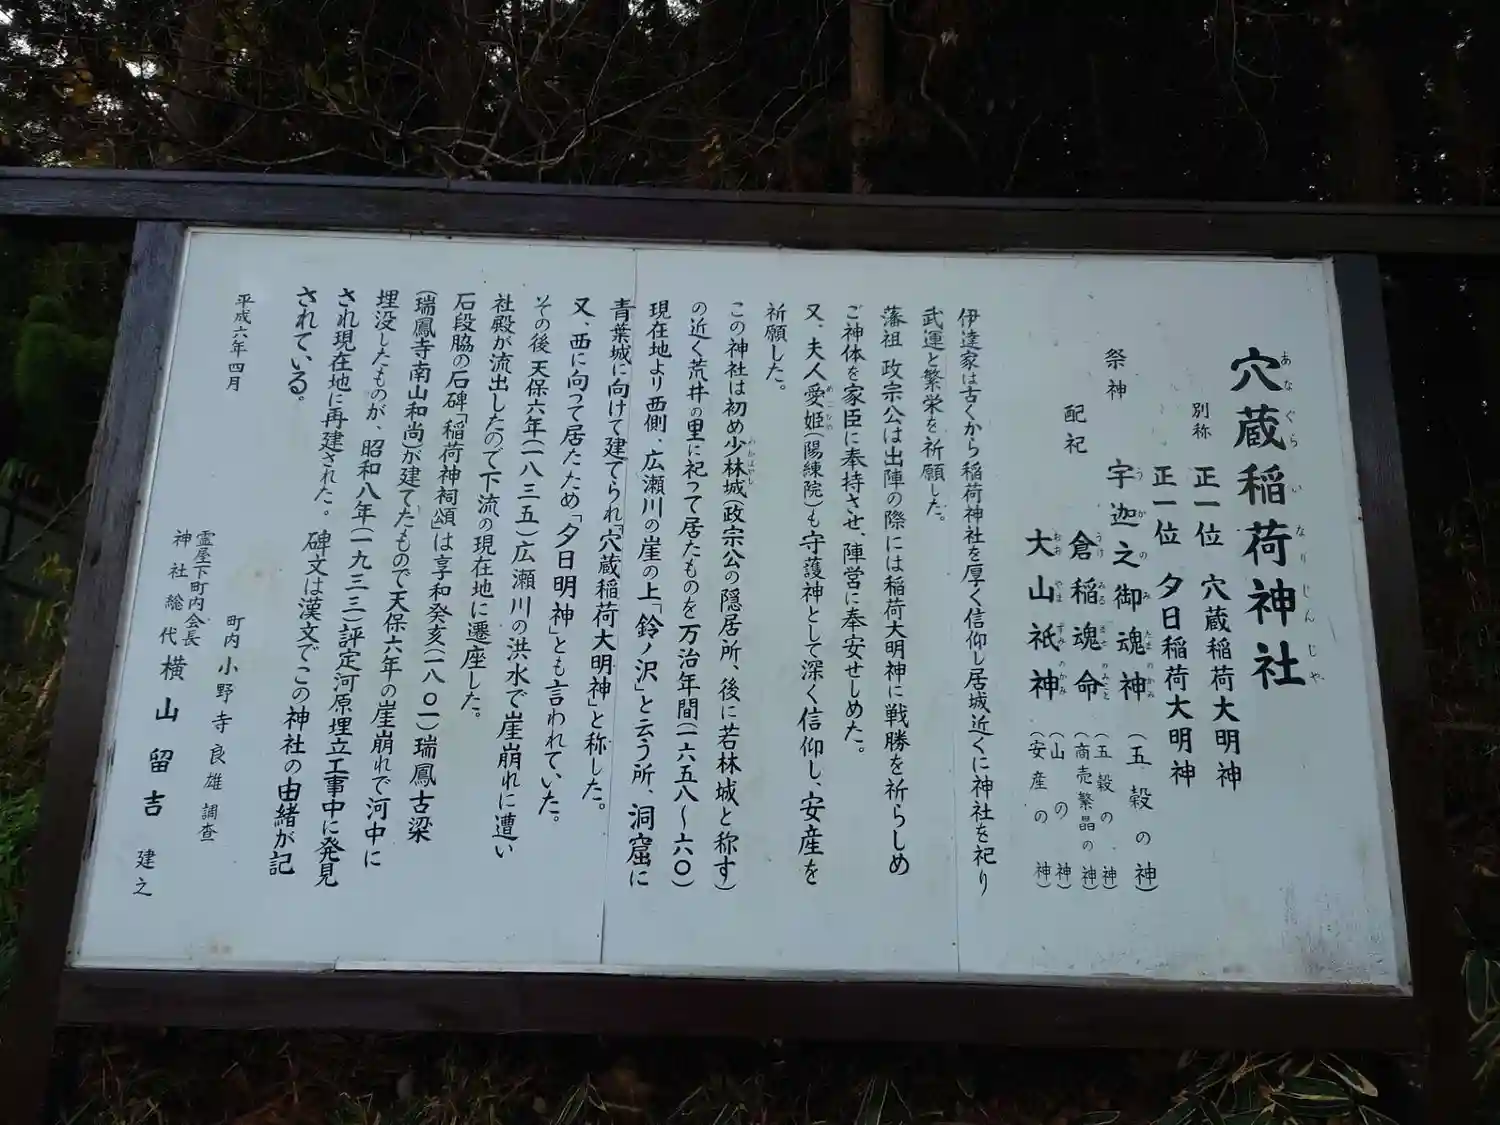 穴蔵稲荷神社
あなぐらいなりじんじや
別称 正一位 穴蔵稲荷大明神
正一位 夕日稲荷大明神
祭神 宇迦之御魂神(五穀の神)
うかのみたまのかみ
配祀 倉稲魂命(五穀の神)(商売繁晶の神)
うけみるたまのみこと
大山祇神(山の神)(安産の神)
おおやまずみのかみ
伊達家は古くから稲荷神社を厚く信仰し居城近くに神社を祀り
武運と繁栄を祈願した。
藩祖 政宗公は出陣の際には稲荷大明神に戦勝を祈らしめ
ご神体を家臣に奉持させ、陣営に奉安せしめた。
又、夫人愛姫(陽練院)も守護神として深く信仰し、安産を
めごひめ
祈願した。
この神社は初め少林城(政宗公の隠居所、後に若林城と称す)
わかばやし
の近く荒井の里に祀って居たものを万治年間(一六五八〜六〇)
現在地より西側、広瀬川の崖の上「鈴ノ沢」と云う所、洞窟に
青葉城に向けて建てられ「穴蔵稲荷大明神」と称した。
又、西に向って居たため「夕日明神」とも言われていた。
その後天保六年(一八三五)広瀬川の洪水で崖崩れに遭い
社殿が流出したので下流の現在地に遷座した。
石段脇の石碑「稲荷神祠頌」は享和癸亥(一八〇一)瑞鳳古梁
(瑞鳳寺南山和尚)が建てたもので天保六年の崖崩れで河中に
埋没したものが、昭和八年(一九三三)評定河原埋立工事中に発見
され現在地に再建された。碑文は漢文でこの神社の由緒が記
されている。
平成六年四月
町内 小野寺良雄 調査
霊屋下町内会長
神社総代 横山留吉 建之